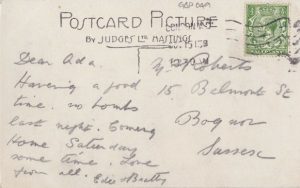 POSTCARD PICTURE
BY JUDGES LTD HASTINGS
Dear Ada.
Having a good
time. no bombs
last night. Coming
Home Saturday
some time. Love
from all. Edie
Roberts
15 Belmont St
Bognor
Sussex